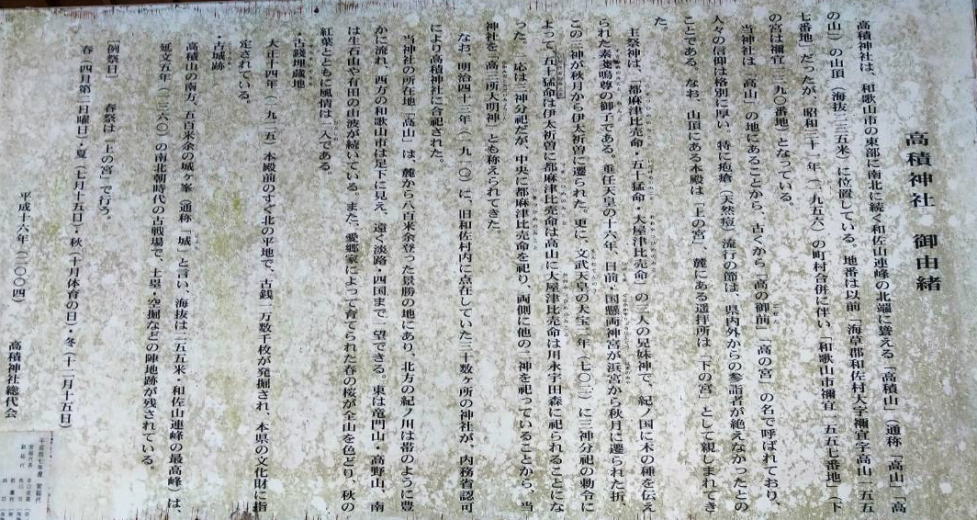 高積神社 御由緒
高積神社は、和歌山市の東部に南北に続く和佐山連峰の北端に聳える「高積山」(通称「高山」「高
の山」)の山頂(海抜二三五米)に位置している。地番は以前「海草郡和佐村大字禰宜字高山一五五
七番地」だったが、昭和三十一年(一九五六)の町村合併に伴い「和歌山市禰宜一五五七番地」(下
の宮は禰宜一三九〇番地)となっている。
当神社は「高山」の地にあることから、古くから「高の御前」「高の宮」の名で呼ばれており、
人々の信仰は格別に厚い。特に疱瘡(天然痘)流行の節は、県内外からの参詣者が絶えなかったとの
ことである。なお、山頂にある本殿は「上の宮」、麓にある遥拝所は「下の宮」として親しまれてき
た。
主祭神は、「都麻津比売命・五十猛命・大屋津比売命」の三人の兄妹神で、紀ノ国に木の種を伝え
られた素戔嗚尊の御子である。垂仁天皇の十六年、日前・国懸両神宮が浜宮から秋月に遷られた折、
この三神が秋月から伊太祈曽に遷られた。更に、文武天皇の大宝二年(七〇二)に三神分祀の勅令に
よって、五十猛命は伊太祈曽に都麻津比売命は高山に大屋津比売命は川永宇田森に祀られることにな
った。一応は三神分祀だが、中央に都麻津比売命を祀り、両側に他の二神を祀っていることから、当
神社を「高三所大明神」とも称えられてきた。
なお、明治四十三年(一九一〇)に、旧和佐村内に点在していた三十数ヶ所の神社が、内務省認可
により高積神社に合祀された。
当神社の所在地「高山」は、麓から八百米余登った景勝の地にあり、北方の紀ノ川は帯のように豊
かに流れ、西方の和歌山市は足下に見え、遠く淡路・四国まで一望できる。東は竜門山・高野山、南
は生石山や有田の山波が続いている。また、愛郷家によって育てられた春の桜が全山を色どり、秋の
紅葉とともに風情は一入である。
・古銭埋蔵地
大正十四年(一九二五)本殿前のすぐ北の平地で、古銭一万数千枚が発掘され、本県の文化財に指
定されている。
・古城跡
高積山の南方、五百米余の城ヶ峯(通称「城」と言い、海抜は二五五米・和佐山連峰の最高峰)は、
延文五年(一三六〇)の南北朝時代の古戦場で、土塁・空掘などの陣地跡が残されている。
「例祭日」 春祭は「上の宮」で行う。
春(四月第二日曜日)・夏(七月十五日)・秋(十月体育の日)・冬(十二月十五日)
平成十六年(二〇〇四) 高積神社総代会